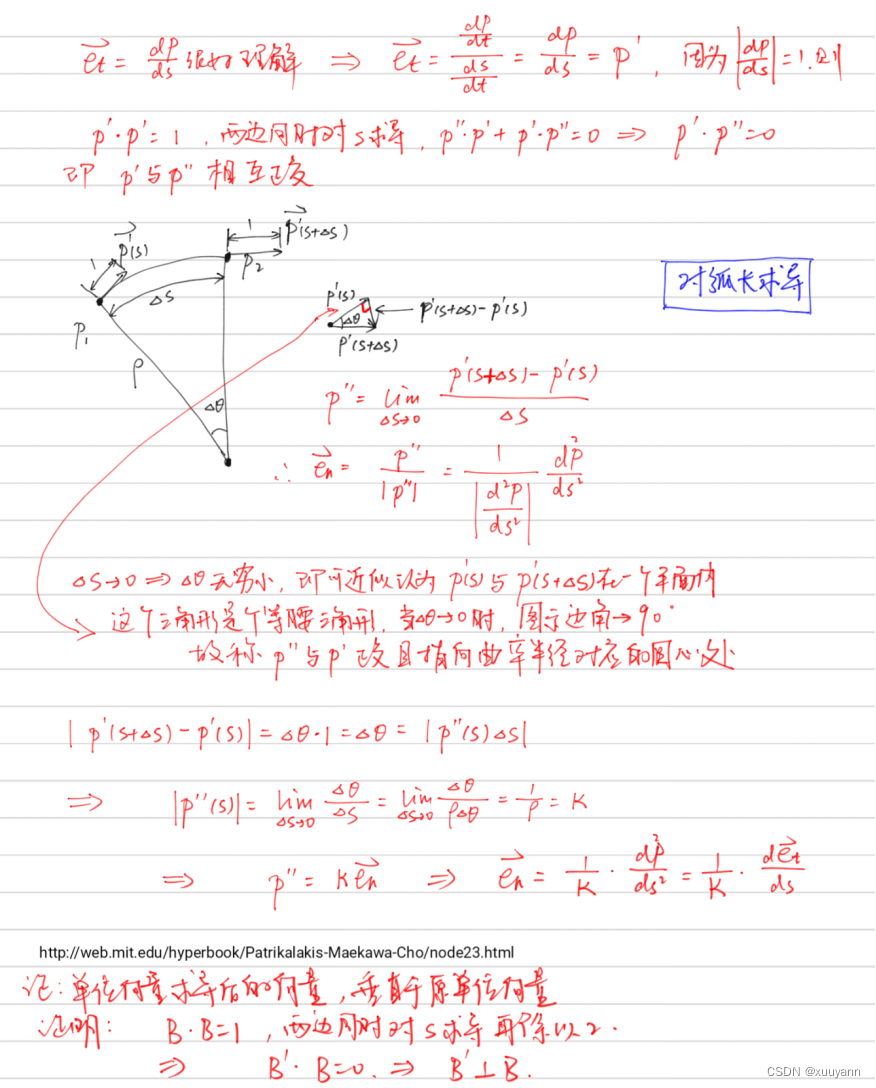 $\vec{e_t} = \frac{dp}{ds}$ 很好理解 ⇒ $\vec{e_t} = \frac{\frac{dp}{dt}}{\frac{ds}{dt}} = \frac{dp}{ds} = p'$, 因为 $\left|\frac{dp}{ds}\right| = 1$. 则
p'·p'=1, 两边同时对s求导, p''·p'+p'·p''=0 ⇒ p'·p''=0
即 p'与p''相互正交
1 $\vec{p'}(s)$ 1 $\vec{p'}(s+Δs)$
P₁ Δs P₂
ρ Δθ
对弧长求导
p'(s) Δθ p'(s+Δs)-p'(s)
p'(s+Δs)
$p'' = \lim_{Δs→0} \frac{p'(s+Δs)-p'(s)}{Δs}$
∴ $\vec{e_n} = \frac{p''}{|p''|} = \frac{1}{\left|\frac{d^2p}{ds^2}\right|} \frac{d^2p}{ds^2}$
Δs→0 ⇒ Δθ无穷小, 即可近似认为 p'(s)与p'(s+Δs)在一个平面内
这个三角形是个等腰三角形, 当Δθ→0时, 图示边角→90°
故称 p''与p'正交且指向曲率半径对应的圆心处
|p'(s+Δs)-p'(s)|=Δθ·1=Δθ=|p''(s)Δs|
⇒ $|p''(s)| = \lim_{Δs→0} \frac{Δθ}{Δs} = \lim_{Δs→0} \frac{Δθ}{ρΔθ} = \frac{1}{ρ} = K$
⇒ $p'' = K\vec{e_n}$ ⇒ $\vec{e_n} = \frac{1}{K} · \frac{d^2p}{ds^2} = \frac{1}{K} · \frac{d\vec{e_t}}{ds}$
http://web.mit.edu/hyperbook/Patrikalakis-Maekawa-Cho/node23.html
记: 单位向量求导后的向量, 垂直于原单位向量
证明: B·B=1, 两边同时对s求导再除以2.
⇒ B'·B=0. ⇒ B'⊥B.
CSDN @xuuyann